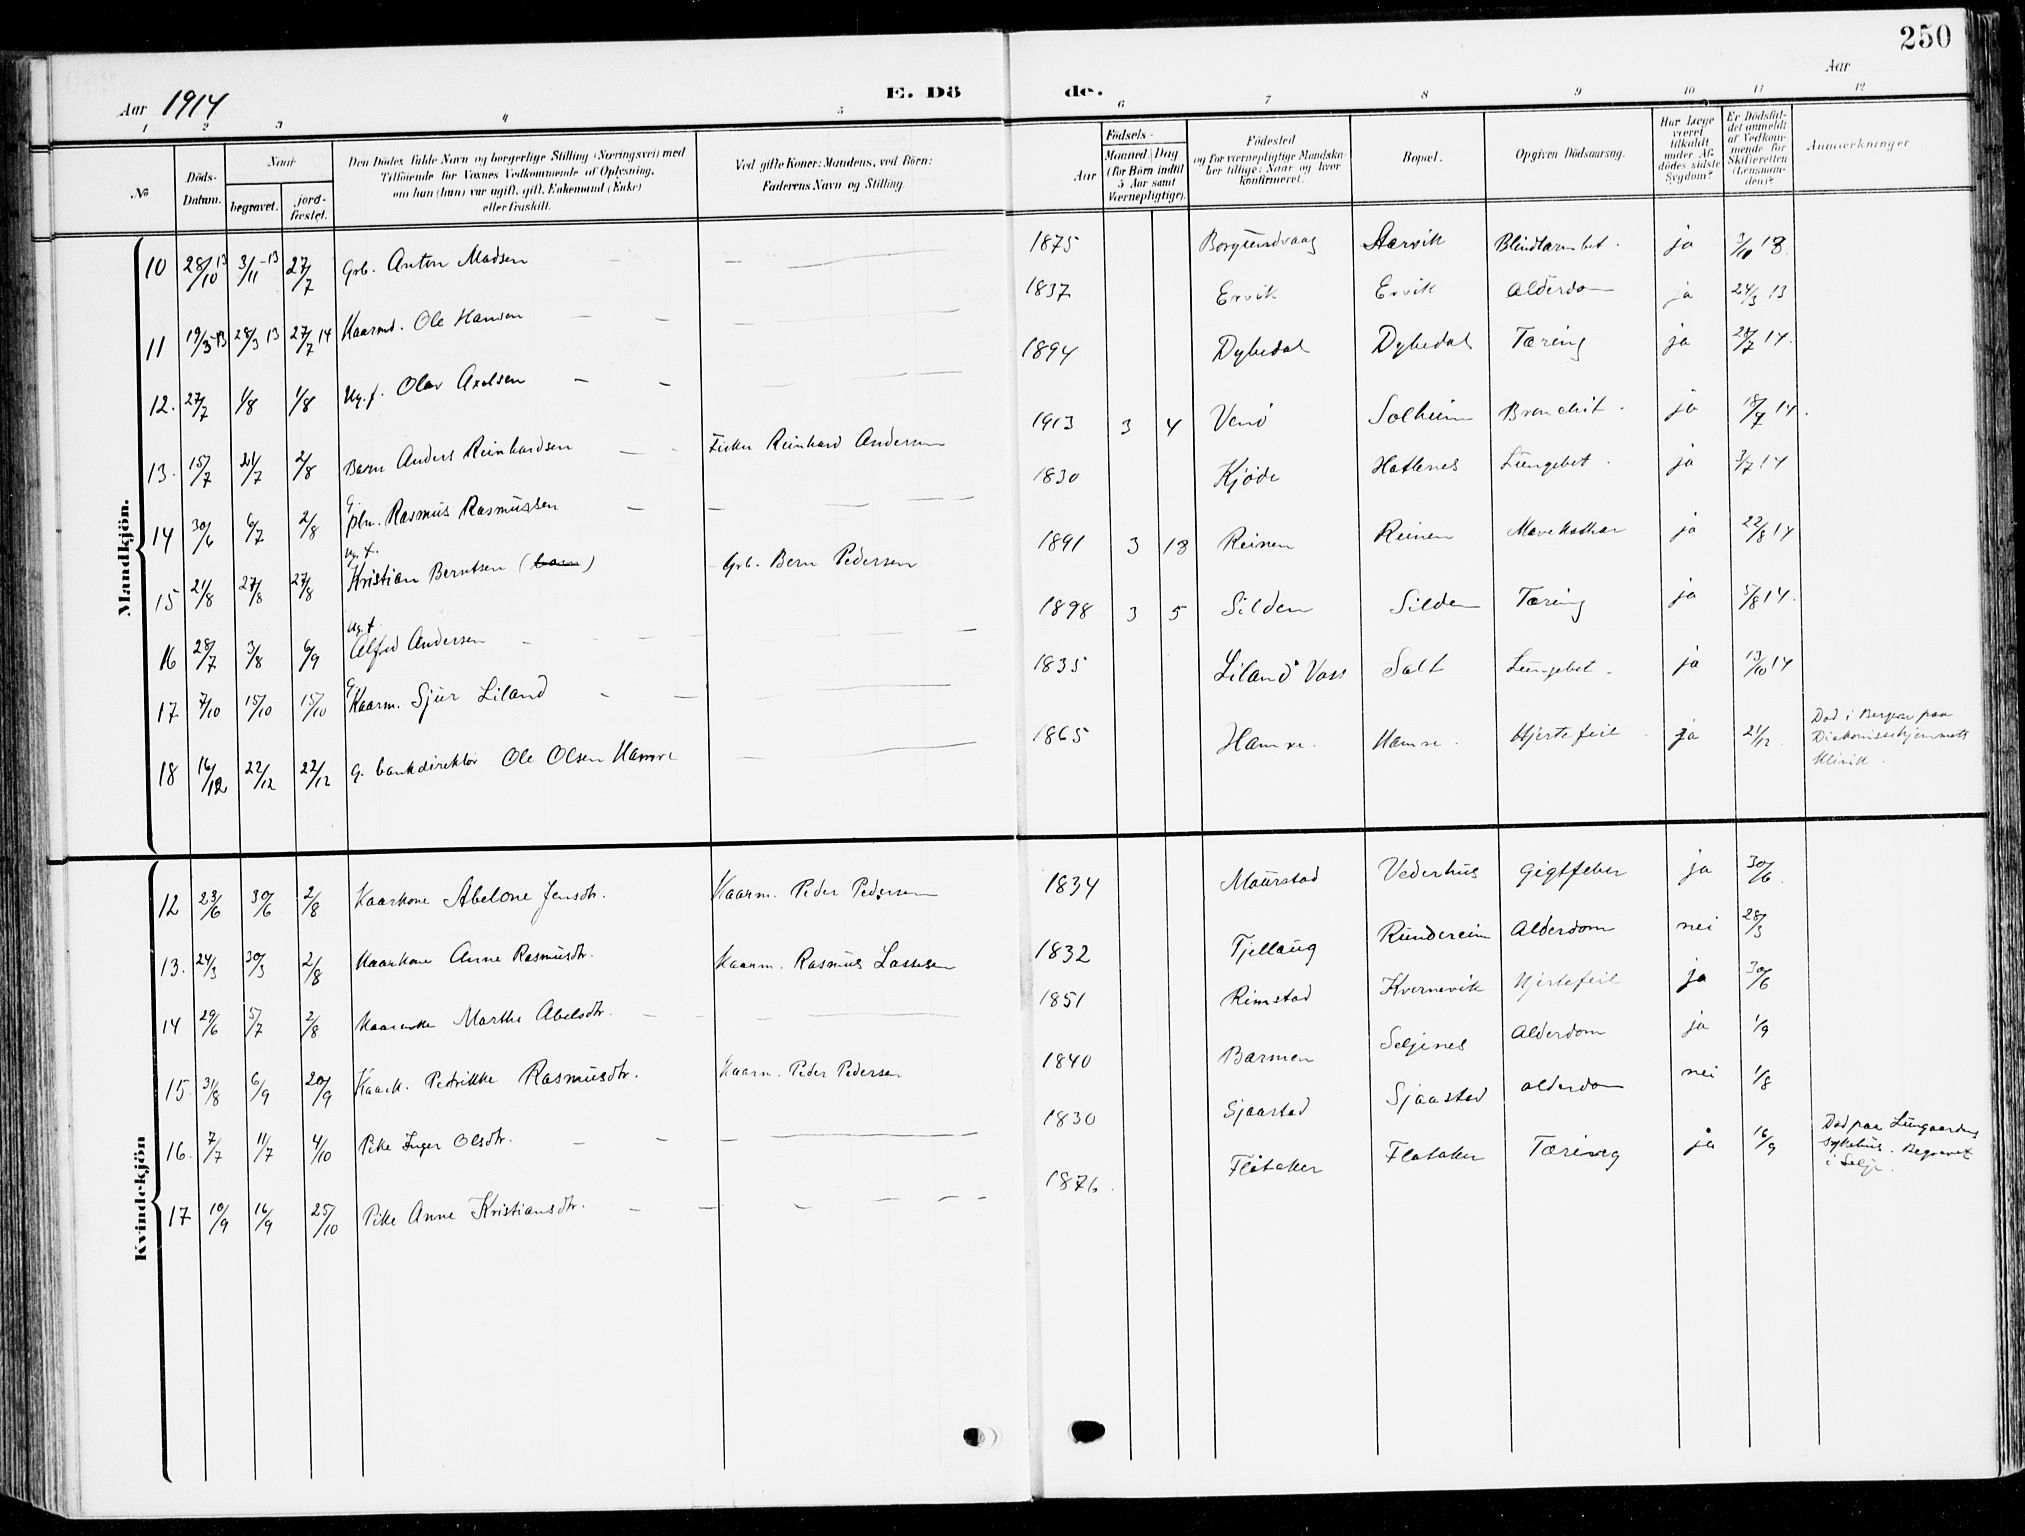 250
Aar 1914
E. Dö de.
Aar
1 2 3 4 5 6 7 8 9 10 11 12
No
Döds-Datum.
Naar
begravet.
jord-fæstet.
Den Dödes fulde Navn og borgerlige Stilling (Næringsvei) med
Tilföiende for Voxnes Vedkommende af Oplysning,
om han (hun) var ugift, gift, Enkemand (Enke)
eller fraskilt.
Ved gifte Koner: Mandens, ved Börn:
Faderens Navn og Stilling.
Födsels-
Aar
Maaned. Dag
(for Börn indtil
5 Aar samt
Værnepligtige).
Födested
og for værnepligtige Mandska-
ber tillige: Naar og hvor
konfirmeret.
Bopæl.
Opgiven Dödsaarsag.
Har Læge
været
tilkaldt
under Af-
dödes sidste
Sygdom?
Er Dödsfal-
det anmeldt
af Vedkom-
mende for
Skifteretten
(Lensman-
den)?
Anmærkninger
Mandkjön.
10 28/10 13 3/11 -13 27/7 Grb. Anton Madsen — — 1875 Borgundvaag Aarvik Blindtarmbet. ja 3/10 13
11 19/3 -13 28/3 13 27/7 14 Kaarmd. Ole Hansen — — 1837 Ervik Ervik Alderdom ja 24/3 13
12. 27/7 1/8 1/8 Ug. f. Olav Axelsen — — 1894 Dybedal Dybedal Tæring ja 28/7 14.
13. 15/7 21/7 2/8 Barn Anders Reinhardsen — Fisker Reinhard Andersen 1913 3 4 Venö Solheim Bronchit. ja 18/7 14.
14 30/6 6/7 2/8 G. pln. Rasmus Rasmussen — — 1830 Kjöde Hatlenes Lungebet. ja 3/7 14
15 21/8 27/8 27/8 Ug. f. Kristian Berntsen (barn) Grb. Bern Pedersen 1891 3 13 Reinen Reinen Mavekathar ja 22/8 14
16 28/7 3/8 6/9 Ug. f. Alfred Andersen — 1898 3 5 Silden Silden Tæring ja 5/8 14.
17 7/10 15/10 15/10 G. Kaarm. Sjur Liland — — 1835 Liland Voss Salt Lungebet. ja 13/10 14
18 16/12 22/12 22/12 G. bankdirektör Ole Olsen Hamre — 1865 Hamre Hamre. Hjertefeil ja 21/12 Död i Bergen paa
Diakonissehjemmets
Klinik.
Kvindekjön
12 23/6 30/6 2/8 Kaarkone Abelone Jensdtr. Kaarm. Peder Pedersen 1834 Maurstad Vederhus Gigtfeber ja 30/6.
13. 24/3 30/3 2/8 Kaarkone Anne Rasmusdtr. Kaarm. Rasmus Lassesen 1832 Tjellaug Rundereim Alderdom nei 28/3
14 29/6 5/7 2/8 Kaarenke Marthe Abelsdtr. — — 1851 Rimstad Kvernevik Hjertefeil ja 30/6
15. 31/8 6/9 20/9 Kaark. Petrikke Rasmusdtr. Kaarm. Peder Pedersen 1840 Barmen Seljenes Alderdom ja 1/9
16. 7/7 11/7 4/10 Pike Inger Olsdtr. — — 1830 Sjaastad Sjaastad alderdom nei 1/8
17 10/9 16/9 25/10 Pike Anne Kristiansdtr. — — 1876. Flataker Flataker Tæring ja 16/9 Död paa Lungaardens
sykehus. Begravet
i Selje.